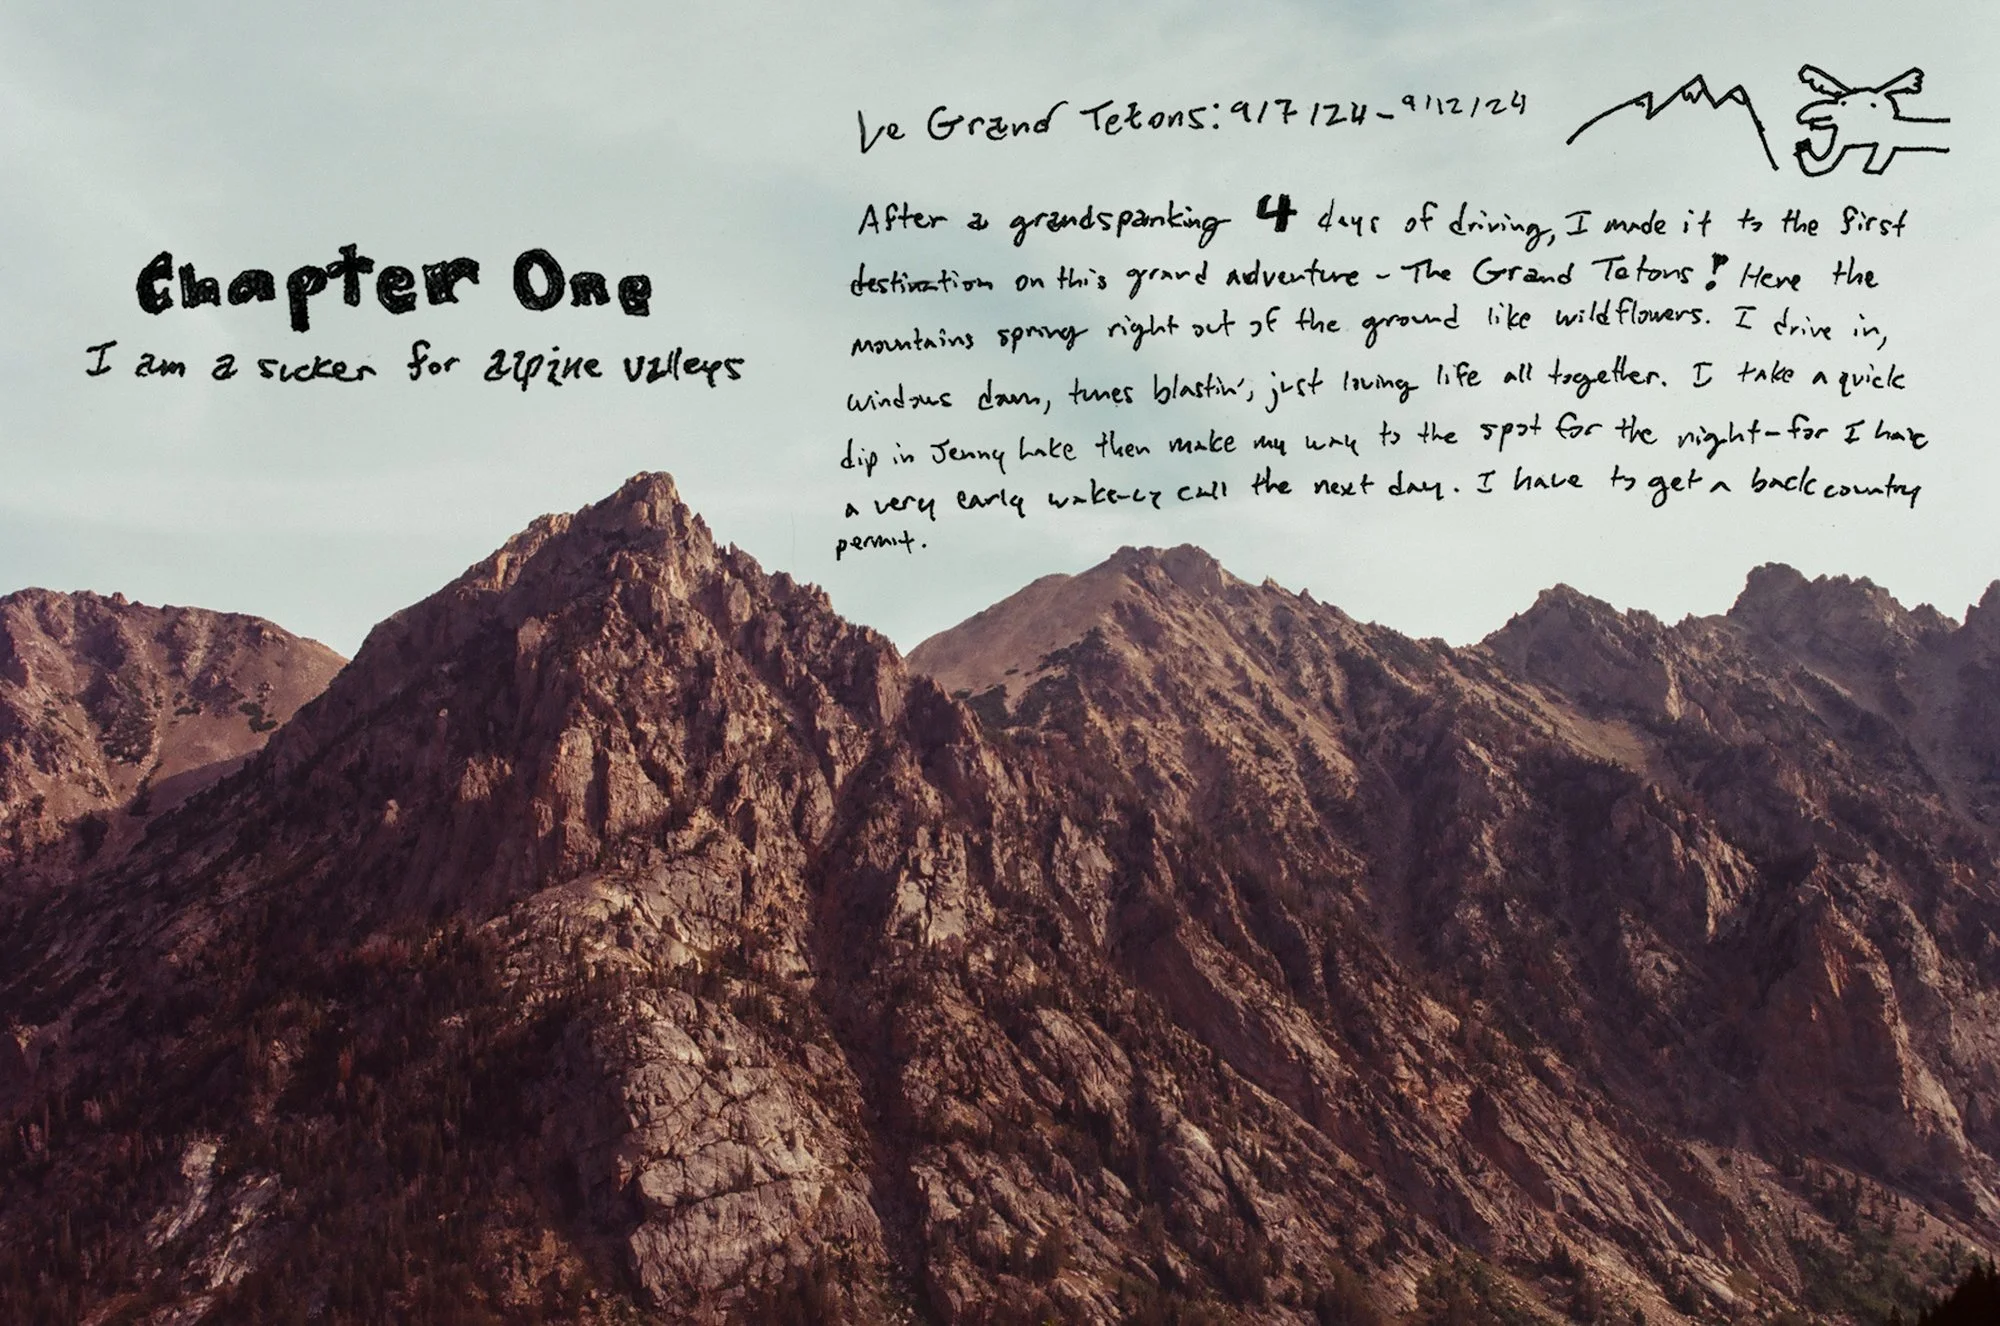 Chapter One
I am a sucker for alpine valleys
Le Grand Tetons: 9/7/24 - 9/12/24
After a grandspanking 4 days of driving, I made it to the first
destination on this grand adventure - The Grand Tetons! Here the
mountains spring right out of the ground like wildflowers. I drive in,
windows down, tunes blastin', just loving life all together. I take a quick
dip in Jenny Lake then make my way to the spot for the night - for I have
a very early wake-up call the next day. I have to get a backcountry
permit.